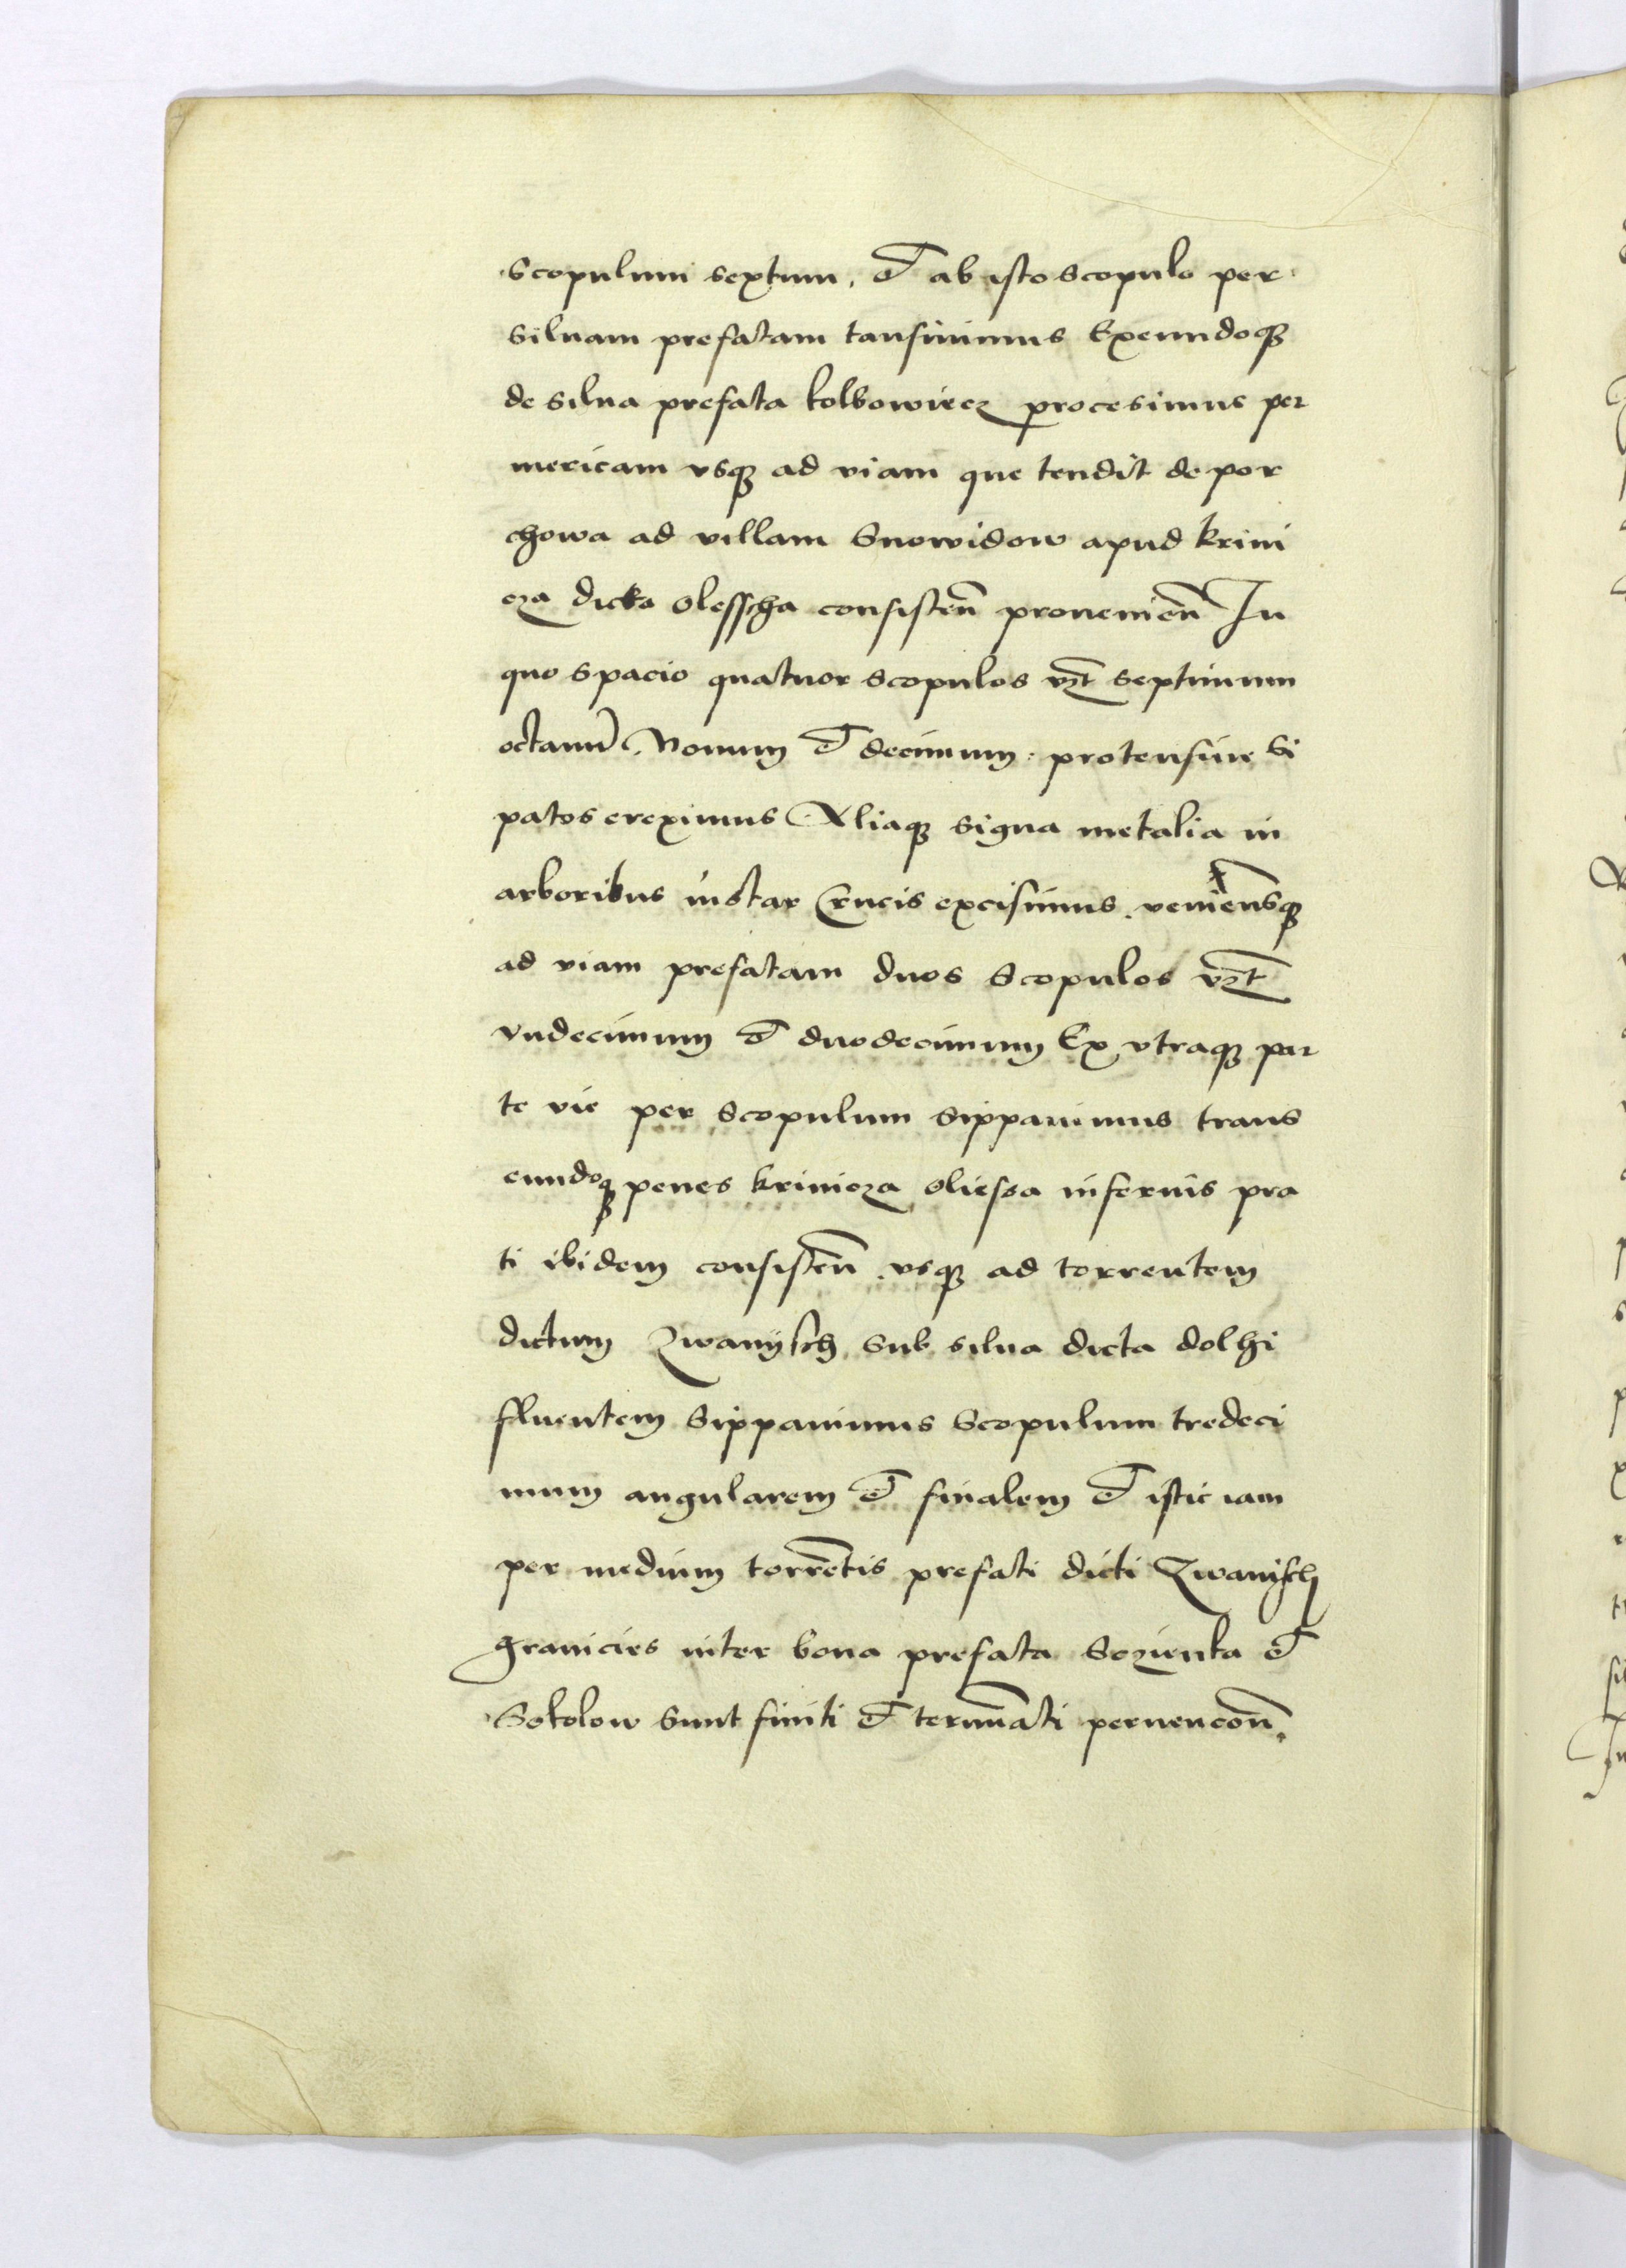 Scopulum sextum, et ab isto scopulo per
siluam prefatam tansiuimus Exeundoqꝫ
de silua prefata kolbowiecz procesimus per
mericam vsqꝫ ad viam que tendit de por
chowa ad villam Snowidow apud krini
cza dicta Olesscha consisten̄ prouenien̄ In
quo spacio quatuor scopulos vꝫt septimum
octauū, Nonum et decimum: protensiue Si
patos ereximus Aliaqꝫ signa metalia in
arboribus instar Crucis excisimus. veniensqꝫ
ad viam prefatam duos Scopulos vꝫt
vndecimum et duodecimum Ex vtraqꝫ par
te vie per Scopulum sippauimus trans
eundoqꝫ penes krinicza Oliessa infernis pra
ti ibidem consisten̄ vsqꝫ ad torrentem
dictum Zwanysch sub silua dicta dolhi
fluentem Sippauimus Scopulum tredeci
mum angularem et finalem et istic iam
per medium torrētis prefati dicti Zwanisch
granicies inter bona prefata Sczienka et
Sokolow sunt finiti et termīati peruencōn̄.